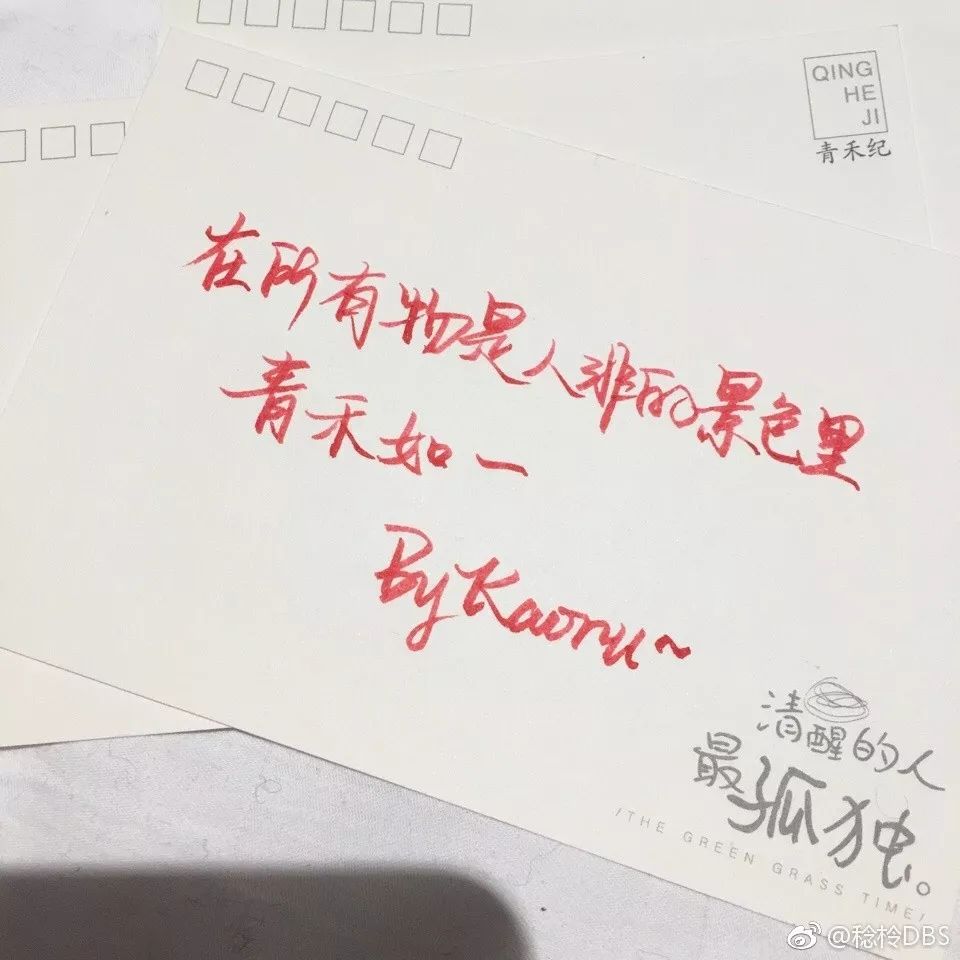 QING
HE
JI
青禾纪
在所有物是人非的景色里
青禾如一
By Kaoru~
清醒的人
最孤独。
/THE GREEN GRASS TIME/
@稔柃DBS